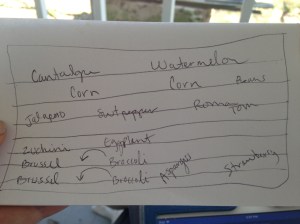 Cantalope Watermelon
Corn Corn Beans
Jalapeno Sweetpepper
Zuchini Eggplant
Brussel Broccoli
Brussel Broccoli Asparagus Strawberry